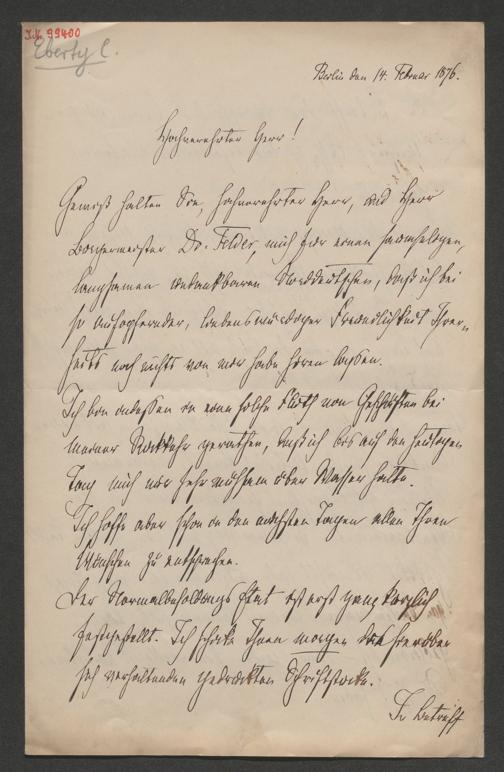 I.N. 99400
Eberty C.
Berlin den 14. Februar 1876.
Hochverehrter Herr!
Gewiß halten Sie, hochverehrter Herr, und Herr
Bürgermeister Dr. Felder, mich für einen saumseligen,
langsamen undankbaren Norddeutschen, daß ich bei
so aufopfernder, liebenswürdiger Freundlichkeit Ihrer-
seits noch nichts von mir habe hören lassen.
Ich bin indessen in eine solche Fluth von Geschäften bei
meiner Rückkehr gerathen, daß ich bis auf den heutigen
Tag mich nur sehr mühsam über Wasser halte.
Ich hoffe aber schon in den nächsten Tagen allen Ihren
Wünschen zu entsprechen.
Der Normalbesoldungs Etat ist erst ganz kürzlich
festgestellt. Ich schicke Ihnen morgen die hierüber
sich verhaltenden gedruckten Schriftstücke.
In Betreff